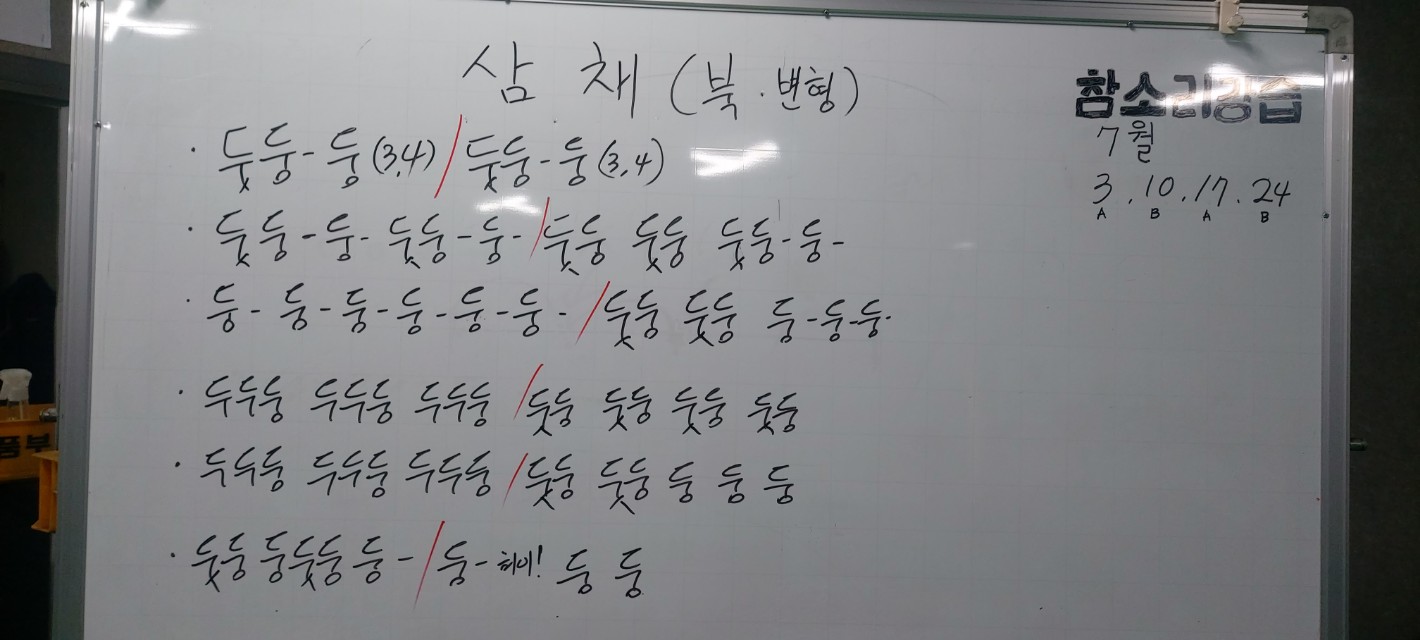 삼채 (북·변형)
참소리강습
7월
3 . 10 . 17 . 24
A B A B
· 둣둥 - 둥 (3,4) / 둣둥 - 둥 (3,4)
· 둣둥 - 둥 - 둣둥 - 둥 - / 둣둥 둣둥 둣둥 - 둥 -
· 둥 - 둥 - 둥 - 둥 - 둥 - 둥 - / 둣둥 둣둥 둥 - 둥 - 둥 -
· 두두둥 두두둥 두두둥 / 둣둥 둣둥 둣둥 둣둥
· 두두둥 두두둥 두두둥 / 둣둥 둣둥 둥 둥 둥
· 둣둥 둥둣둥 둥 - / 둥 - 허이! 둥 둥
품부